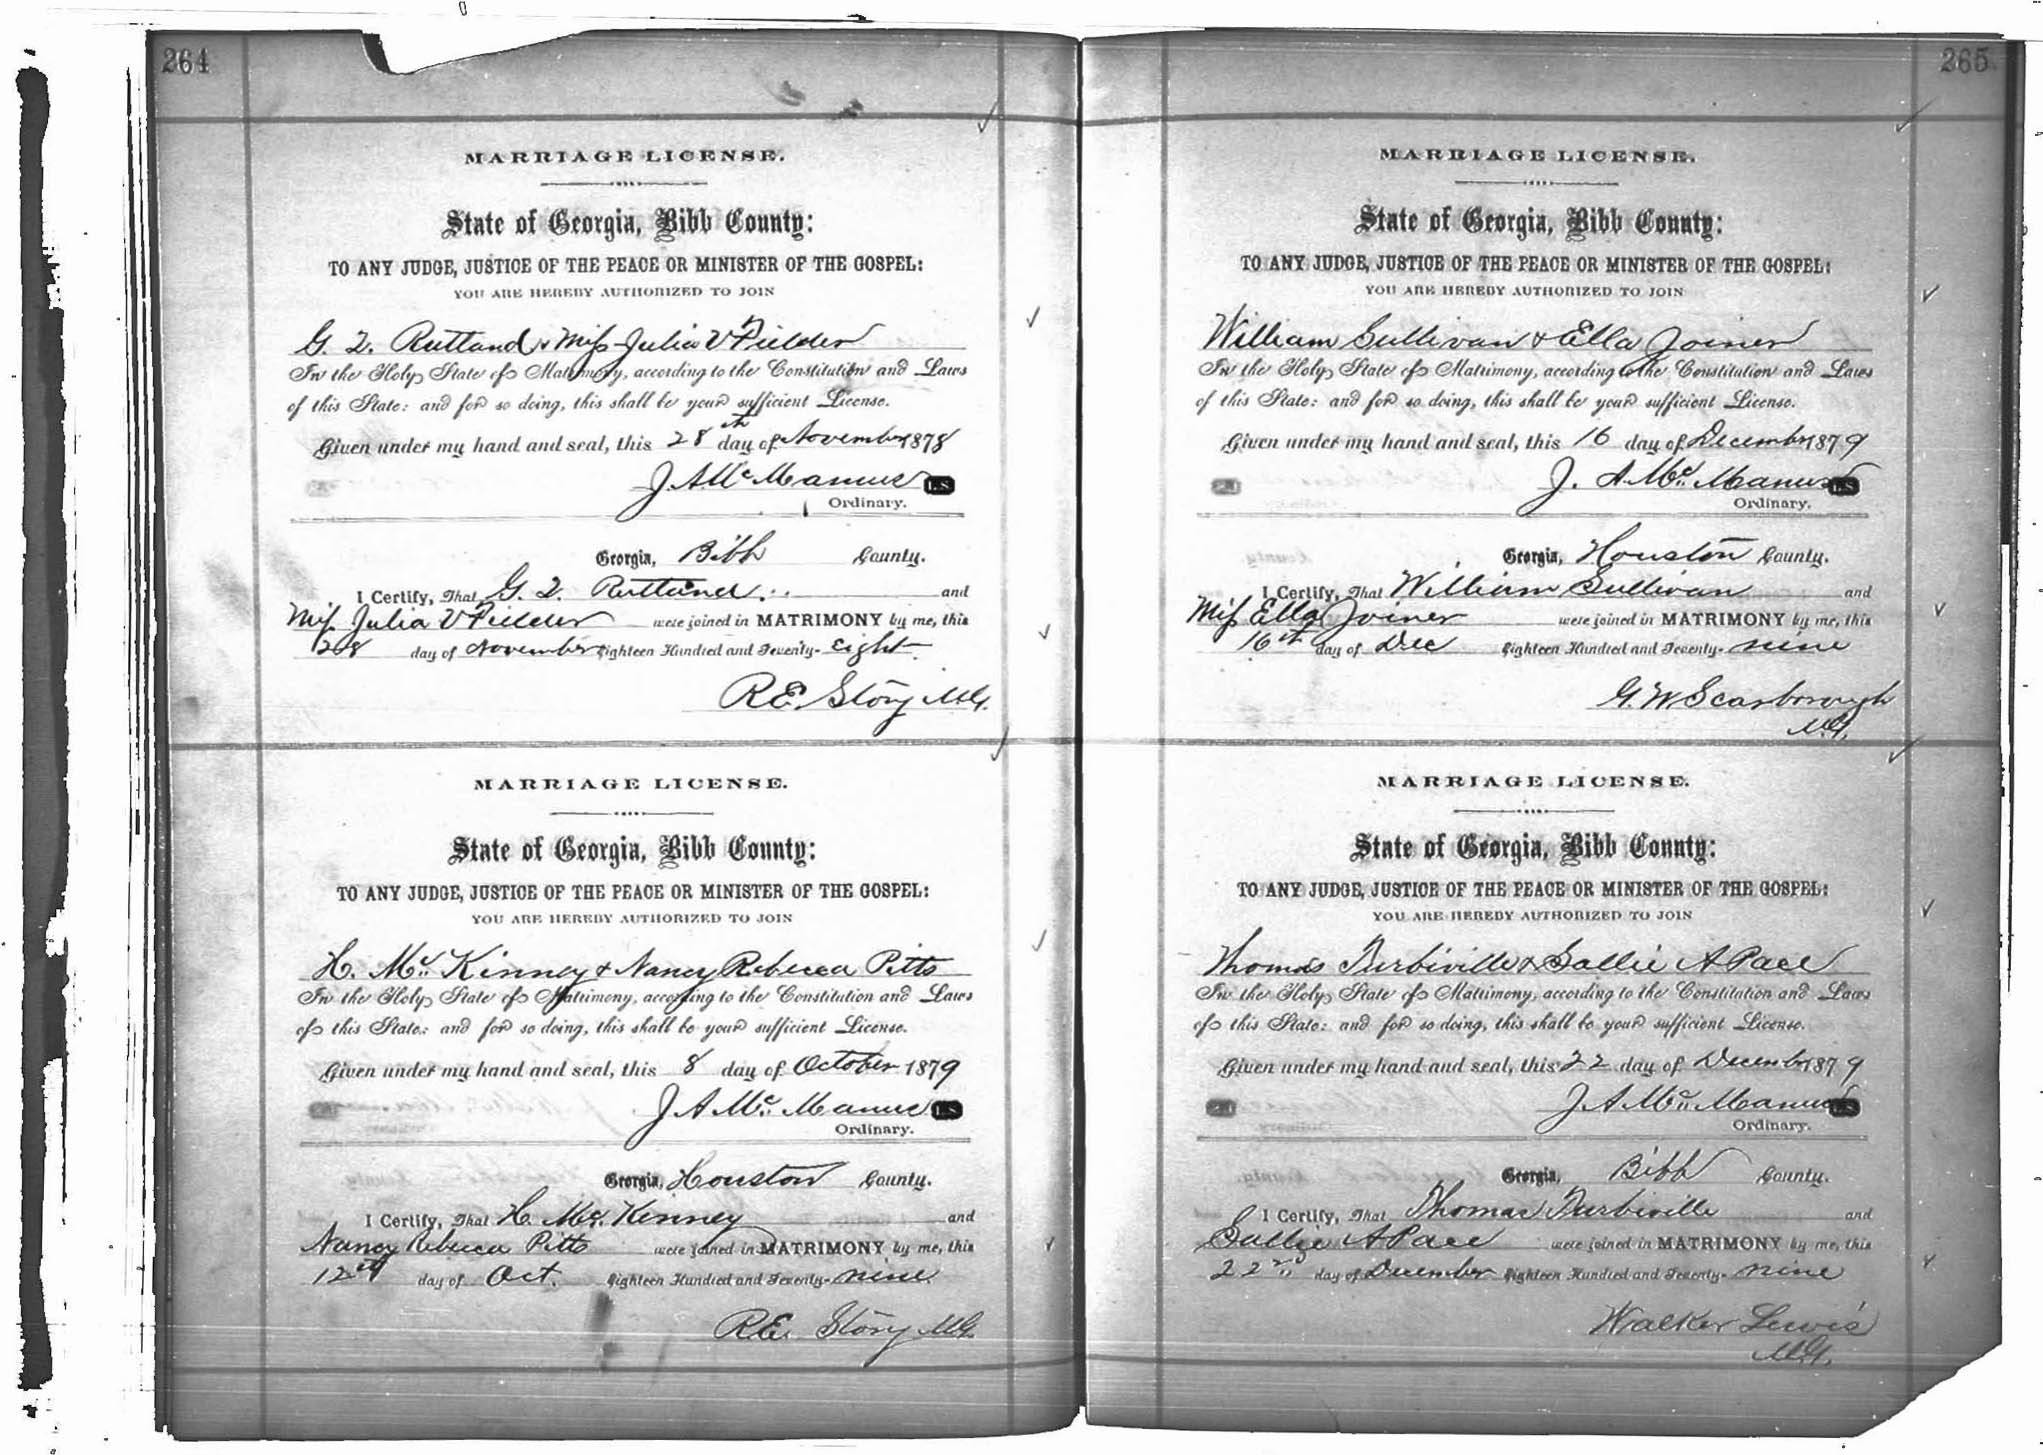 264
MARRIAGE LICENSE.
State of Georgia, Bibb County:
TO ANY JUDGE, JUSTICE OF THE PEACE OR MINISTER OF THE GOSPEL:
YOU ARE HEREBY AUTHORIZED TO JOIN
G. T. Rutland & Miss Julia V Fielder
In the Holy State of Matrimony, according to the Constitution and Laws
of this State: and for so doing, this shall be your sufficient License.
Given under my hand and seal, this 28th day of November 1878
J. A. Mc Manus L.S.
Ordinary.
Georgia, Bibb County.
I Certify, That G. T. Rutland and
Miss Julia V Fielder were joined in MATRIMONY by me, this
28 day of November Eighteen Hundred and Seventy-eight
R E. Story M.G.
MARRIAGE LICENSE.
State of Georgia, Bibb County:
TO ANY JUDGE, JUSTICE OF THE PEACE OR MINISTER OF THE GOSPEL:
YOU ARE HEREBY AUTHORIZED TO JOIN
H. Mc Kinney & Nancy Rebecca Pitts
In the Holy State of Matrimony, according to the Constitution and Laws
of this State: and for so doing, this shall be your sufficient License.
Given under my hand and seal, this 8 day of October 1879
J A Mc Manus L.S.
Ordinary.
Georgia, Houston County.
I Certify, That H. Mc. Kinney and
Nancy Rebecca Pitts were joined in MATRIMONY by me, this
12th day of Oct. Eighteen Hundred and Seventy-nine
R E. Story M.G.
265
MARRIAGE LICENSE.
State of Georgia, Bibb County:
TO ANY JUDGE, JUSTICE OF THE PEACE OR MINISTER OF THE GOSPEL:
YOU ARE HEREBY AUTHORIZED TO JOIN
William Sullivan & Ella Joiner
In the Holy State of Matrimony, according to the Constitution and Laws
of this State: and for so doing, this shall be your sufficient License.
Given under my hand and seal, this 16 day of December 1879
J. A. Mc Manus L.S.
Ordinary.
Georgia, Houston County.
I Certify, That William Sullivan and
Miss Ella Joiner were joined in MATRIMONY by me, this
16th day of Dec Eighteen Hundred and Seventy-nine
G. W Scarborough
M.G.
MARRIAGE LICENSE.
State of Georgia, Bibb County:
TO ANY JUDGE, JUSTICE OF THE PEACE OR MINISTER OF THE GOSPEL:
YOU ARE HEREBY AUTHORIZED TO JOIN
Thomas Turbiville & Sallie A Pace
In the Holy State of Matrimony, according to the Constitution and Laws
of this State: and for so doing, this shall be your sufficient License.
Given under my hand and seal, this 22 day of December 1879
J A Mc Manus L.S.
Ordinary.
Georgia, Bibb County.
I Certify, That Thomas Turbiville and
Sallie A Pace were joined in MATRIMONY by me, this
22nd day of December Eighteen Hundred and Seventy-nine
Walker Lewis
M.G.